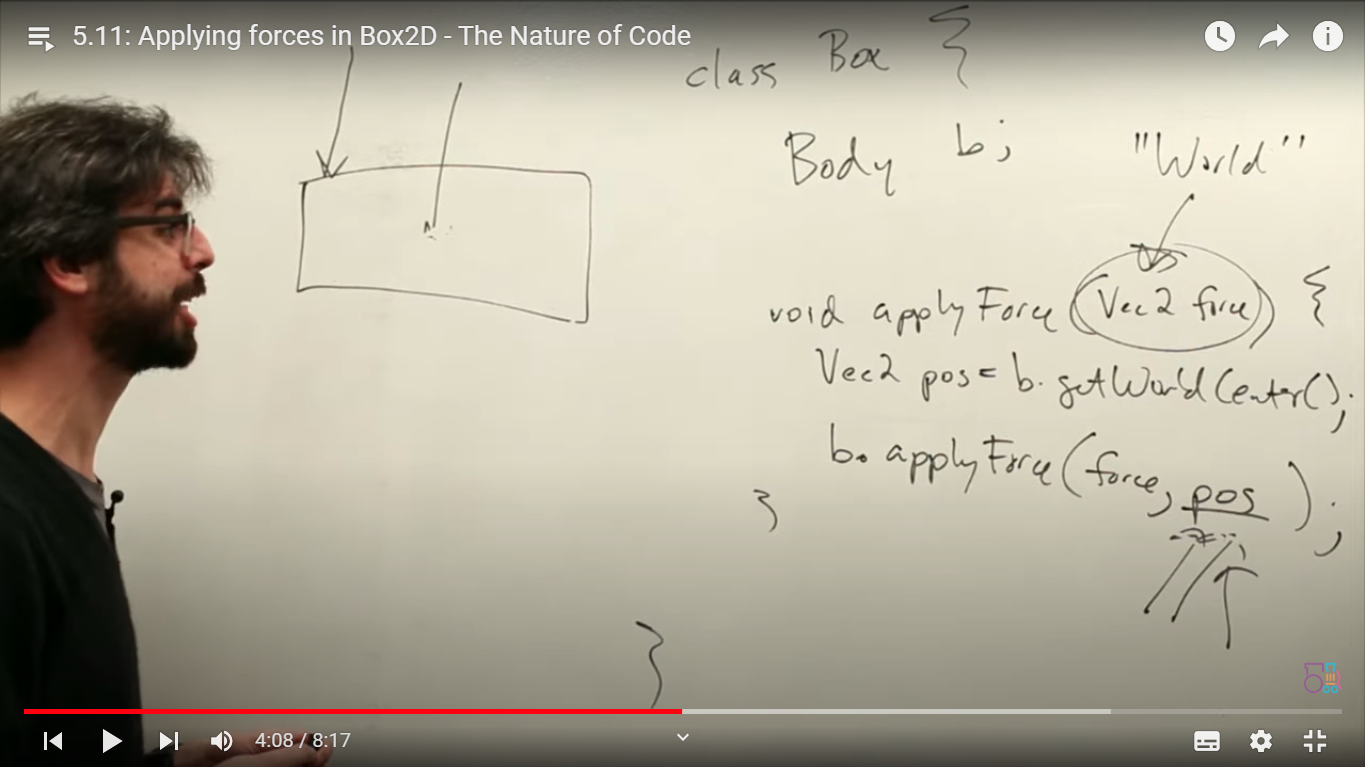 5.11: Applying forces in Box2D - The Nature of Code
class Box {
Body b;
"World"
void applyForce (Vec2 force) {
Vec2 pos = b.getWorldCenter();
b.applyForce(force, pos);
}
}
4:08 / 8:17